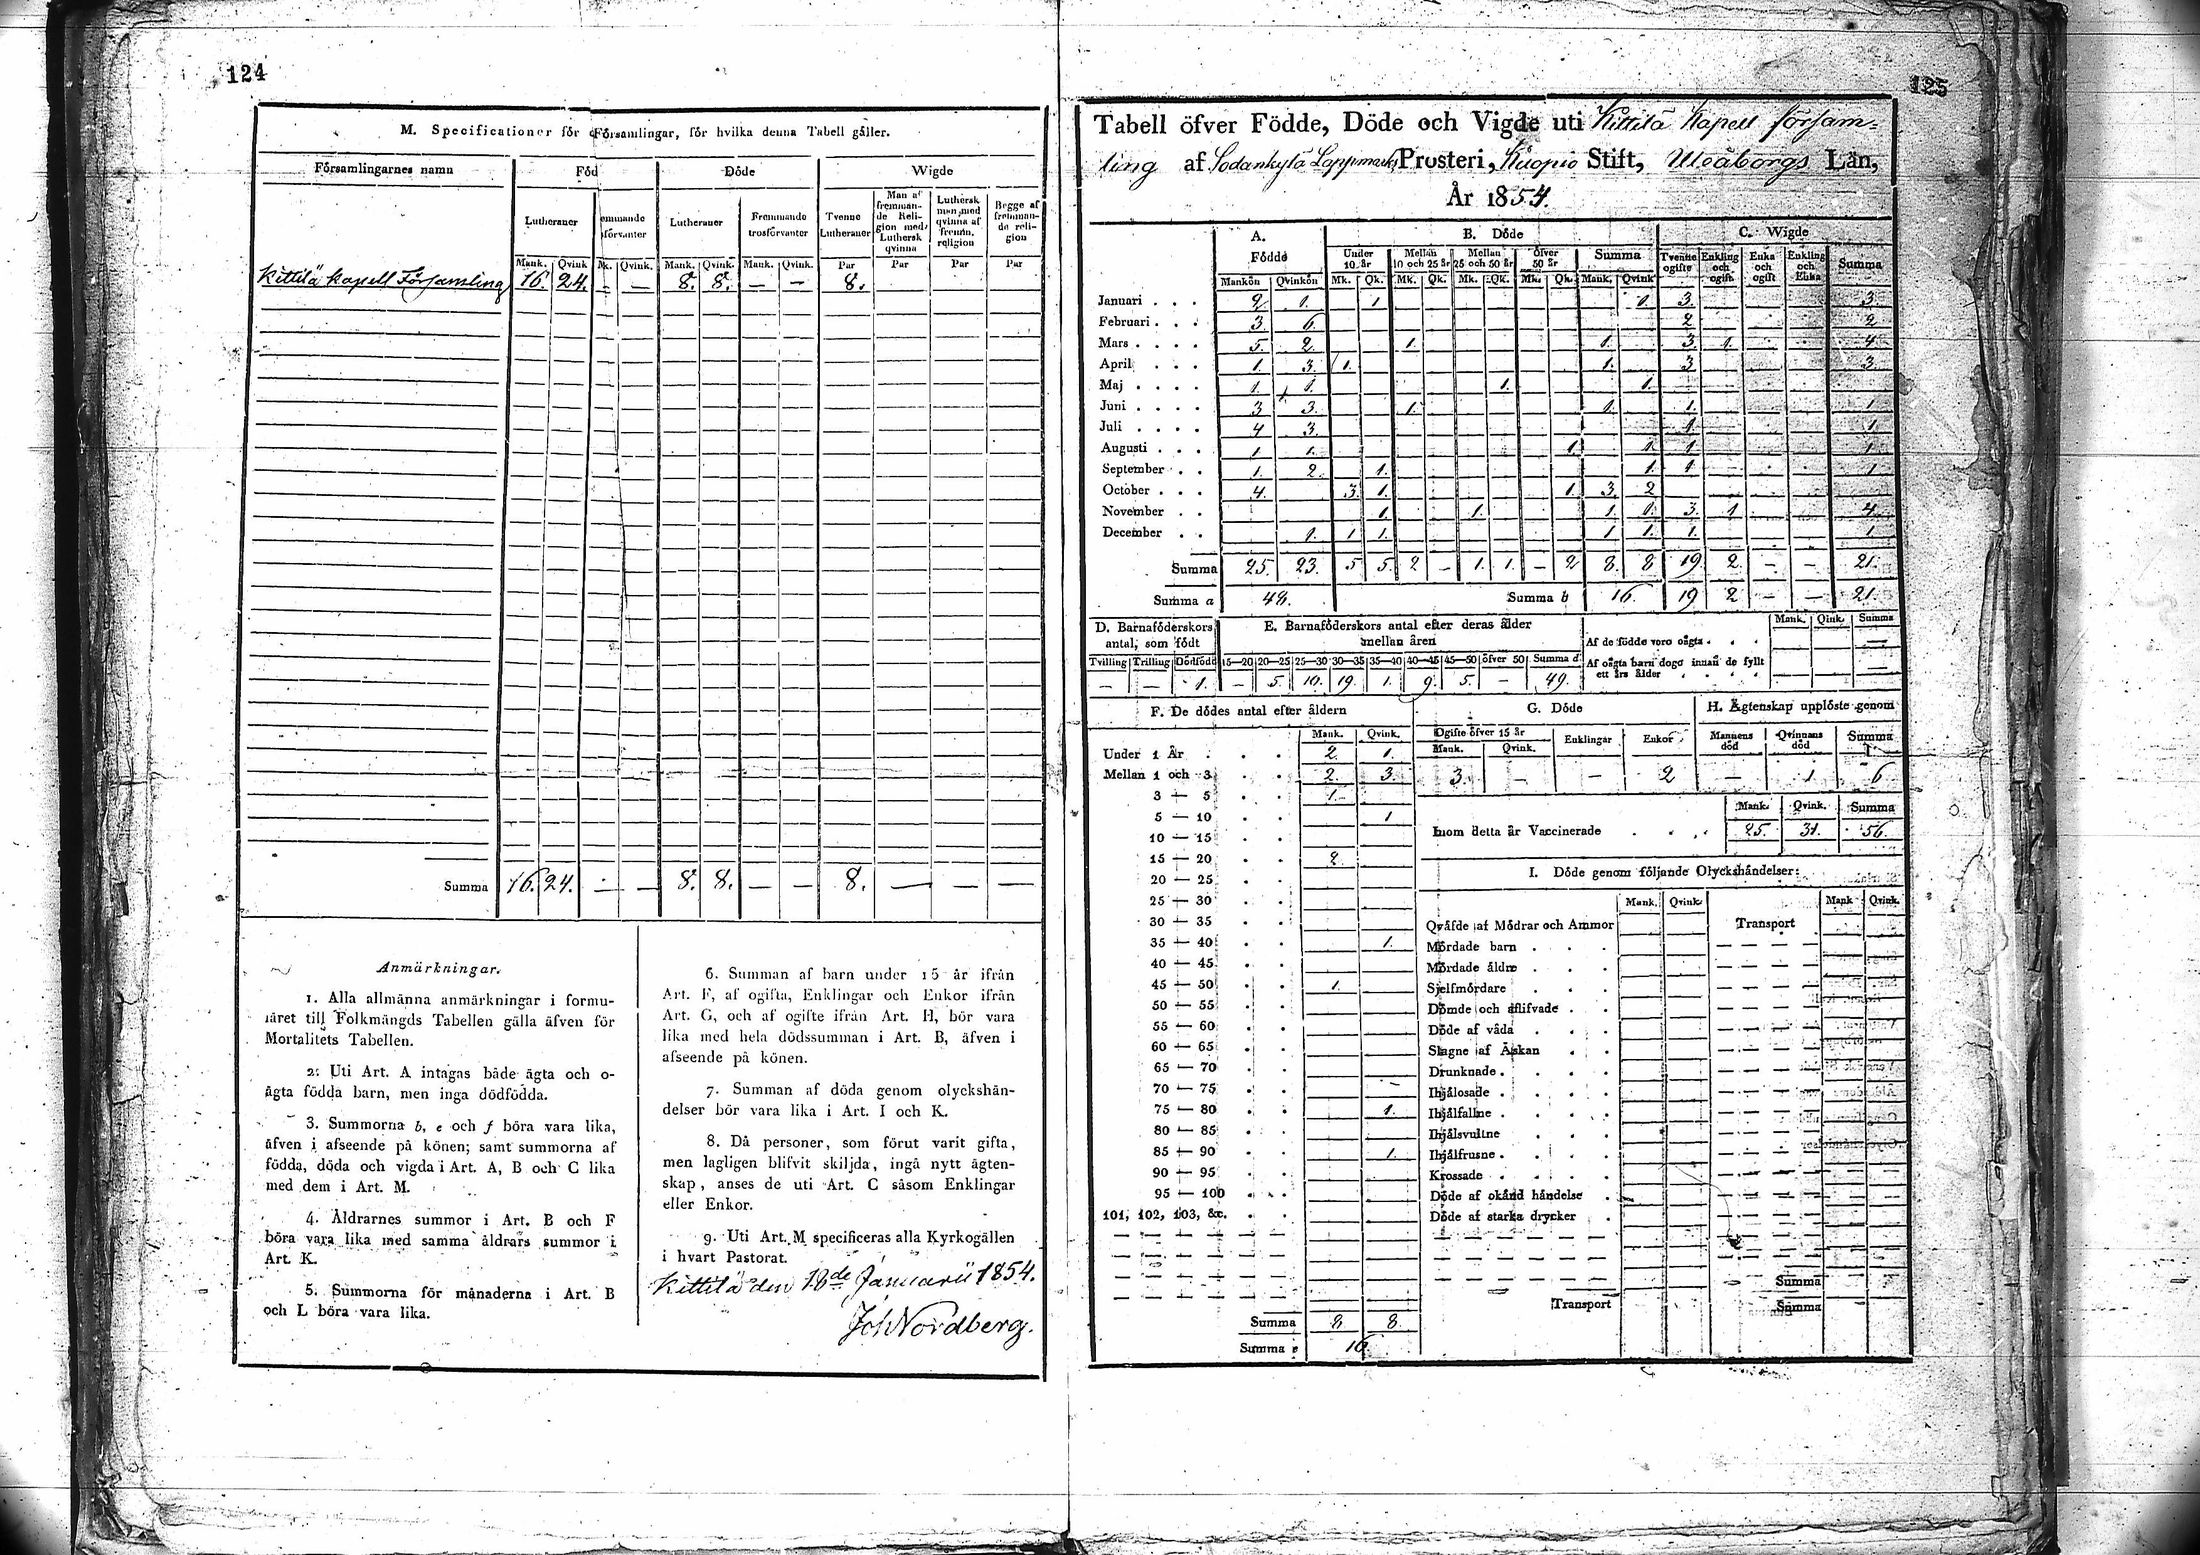 124
M. Specificationer för Församlingar, för hvilka denna Tabell gäller.
Församlingarnes namn Född Döde Wigde
Lutheraner emmande sförvanter Lutheraner Fremmande trosförvanter Tvenne Lutheraner Man af fremmande Religion med Luthersk qvinna Luthersk man med qvinna af fremm. religion Begge af fremmande religion
Mank. Qvink k. Qvink. Mank. Qvink. Mank. Qvink. Par Par Par Par
Kittilä Kapell Församling 16. 24. — — 8. 8. — — 8.
Summa 16. 24. — — 8. 8. — — 8. — — —
Anmärkningar.
1. Alla allmänna anmärkningar i formu-
läret till Folkmängds Tabellen gälla äfven för
Mortalitets Tabellen.
2. Uti Art. A intagas både ägta och o-
ägta födda barn, men inga dödfödda.
3. Summorna b, e och f böra vara lika,
äfven i afseende på könen; samt summorna af
födda, döda och vigda i Art. A, B och C lika
med dem i Art. M.
4. Åldrarnes summor i Art. B och F
böra vara lika med samma åldrars summor i
Art. K.
5. Summorna för månaderna i Art. B
och L böra vara lika.
6. Summan af barn under 15 år ifrån
Art. F, af ogifta, Enklingar och Enkor ifrån
Art. G, och af ogifte ifrån Art. H, bör vara
lika med hela dödssumman i Art. B, äfven i
afseende på könen.
7. Summan af döda genom olyckshän-
delser bör vara lika i Art. I och K.
8. Då personer, som förut varit gifta,
men lagligen blifvit skiljda, ingå nytt ägten-
skap, anses de uti Art. C såsom Enklingar
eller Enkor.
9. Uti Art. M specificeras alla Kyrkogällen
i hvart Pastorat.
Kittilä den 18de Januarii 1854.
Joh Nordberg.
125
Tabell öfver Födde, Döde och Vigde uti Kittilä Kapell försam=
ling af Sodankylä Lappmarks Prosteri, Kuopio Stift, Uleåborgs Län,
År 1854.
A. Födde B. Döde C. Wigde
Under 10 år Mellan 10 och 25 år Mellan 25 och 50 år Öfver 50 år Summa Tvenne ogifte Enkling och ogift Enka och ogift Enkling och Enka Summa
Mankön Qvinkön Mk. Qk. Mk. Qk. Mk. Qk. Mk. Qk. Mank. Qvink
Januari . . . 2. 1. 1 1. 3. 3
Februari . . . 3. 6. 2 2
Mars . . . . 5. 2. 1. 1. 3. 1. 4
April . . . 1. 3. 1. 1. 3 3.
Maj . . . . 1. 1. 1. 1.
Juni . . . . 3 3. 1. 1. 1. 1
Juli . . . . 4 3. 1 1
Augusti . . . 1 1. 1. 1. 1 1
September . . 1. 2 1. 1. 1 1
October . . . 4. 3. 1. 1. 3. 2
November . . 1. 1. 1. 1. 3. 1 4
December . . 1. 1 1. 1 1. 1. 1
Summa 25. 23. 5 5. 2. — 1. 1. — 2 8. 8 19. 2. — — 21.
Summa a 48. Summa b 16. 19 2 — — 21.
D. Barnaföderskors antal, som födt
Tvilling Trilling Dödfödd
— — 1.
E. Barnaföderskors antal efter deras ålder mellan åren
15—20 20—25 25—30 30—35 35—40 40—45 45—50 öfver 50 Summa d
— 5. 10. 19. 1. 9. 5. — 49.
Mank. Qink. Summa
Af de födde voro oägta . . . —
Af oägta barn dogo innan de fyllt
ett års ålder . . . . —
F. De dödes antal efter åldern
Mank. Qvink.
Under 1 År . . . 2. 1.
Mellan 1 och 3 . . 2. 3.
3 — 5 . . 1.
5 — 10 . . 1
10 — 15 . .
15 — 20 . . 2.
20 — 25 . .
25 — 30 . .
30 — 35 . .
35 — 40 . . 1.
40 — 45 . .
45 — 50 . . 1.
50 — 55 . .
55 — 60 . .
60 — 65 . .
65 — 70 . .
70 — 75 . .
75 — 80 . . 1.
80 — 85 . .
85 — 90 . . 1.
90 — 95 . .
95 — 100 . .
101, 102, 103, &c. . .
Summa 8. 8.
Summa e 16
G. Döde
Ogifte öfver 15 år Enklingar Enkor
Mank. Qvink.
3. — — 2
H. Ägtenskap upplöste genom
Mannens död Qvinnans död Summa
— 1 6
Mank. Qvink. Summa
Inom detta år Vaccinerade . . . . 25. 31. 56.
I. Döde genom följande Olyckshändelser:
Mank. Qvink. Mank Qvink.
Qväfde af Mödrar och Ammor Transport
Mördade barn . . .
Mördade äldre . . .
Sjelfmördare . . .
Dömde och aflifvade . .
Döde af våda . . .
Slagne af Åskan . .
Drunknade . . . .
Ihjälosade . . . .
Ihjälfallne . . . .
Ihjälsvultne . . .
Ihjälfrusne . . . .
Krossade . . . .
Döde af okänd händelse .
Döde af starka drycker .
Summa
Transport Summa